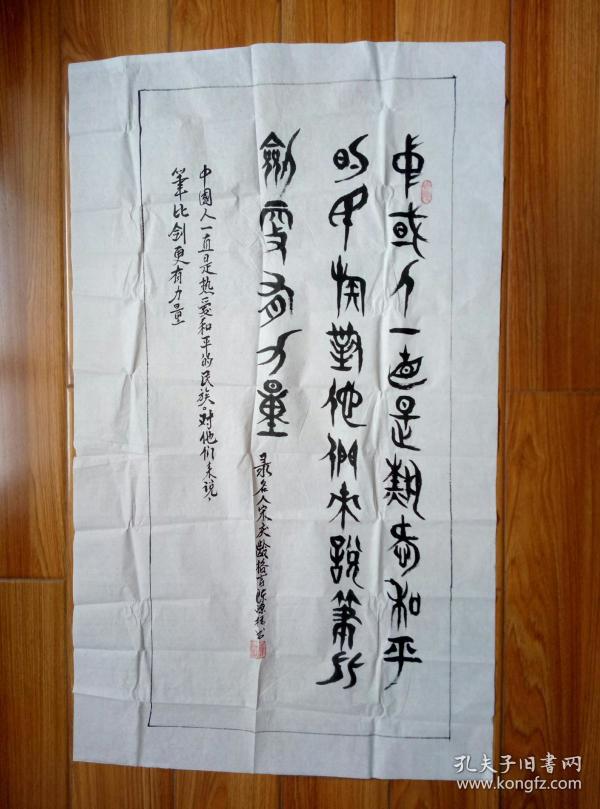 中國人一直是熱愛和平
的民族對他們來說筆比
劍更有力量
录名人宋庆龄格言陈
中國人一直是热爱和平的民族。对他们来说、
筆比剑更有力量
孔夫子旧书网
www.kongfz.com